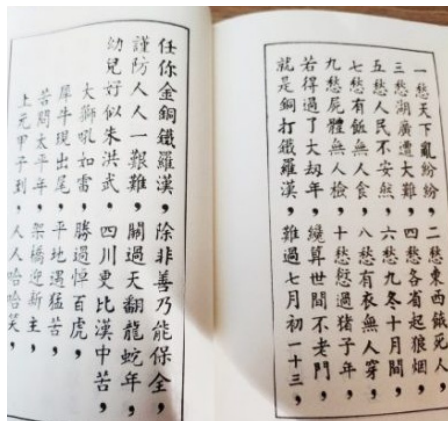 一愁天下亂紛紛，二愁東西餓死人
三愁湖廣遭大難，四愁各省起狼烟，
五愁人民不安然，六愁九冬十月間
七愁有飯無人餐，八愁有衣無人穿
九愁屍體無人檢，十愁愆過猪子年
若得過了大刧年，纔算世間不老門
就是銅打鐵羅漢，難過七月初一十三，
任你金銅鐵羅漢，除非善乃能保全，
謹防人人一艱難，關過天翻龍蛇年，
幼兒好似朱洪武，四川更比漢中苦，
大獅吼如雷，勝過悼百虎，
犀牛現出尾，平地遇猛苦，
苦問太平年，架橋迎新主，
上元甲子到，人人哈哈笑，